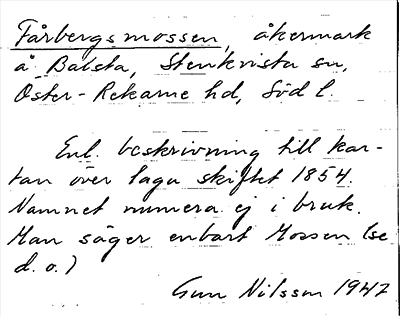 Fårbergsmossen, åkermark
å Balsta, Stenkvista sn,
Öster-Rekarne hd, Söd l.
Enl. beskrivning till kar-
tan över laga skiftet 1854.
Namnet numera ej i bruk.
Man säger enbart Mossen (se
d. o.)
Gun Nilsson 1947